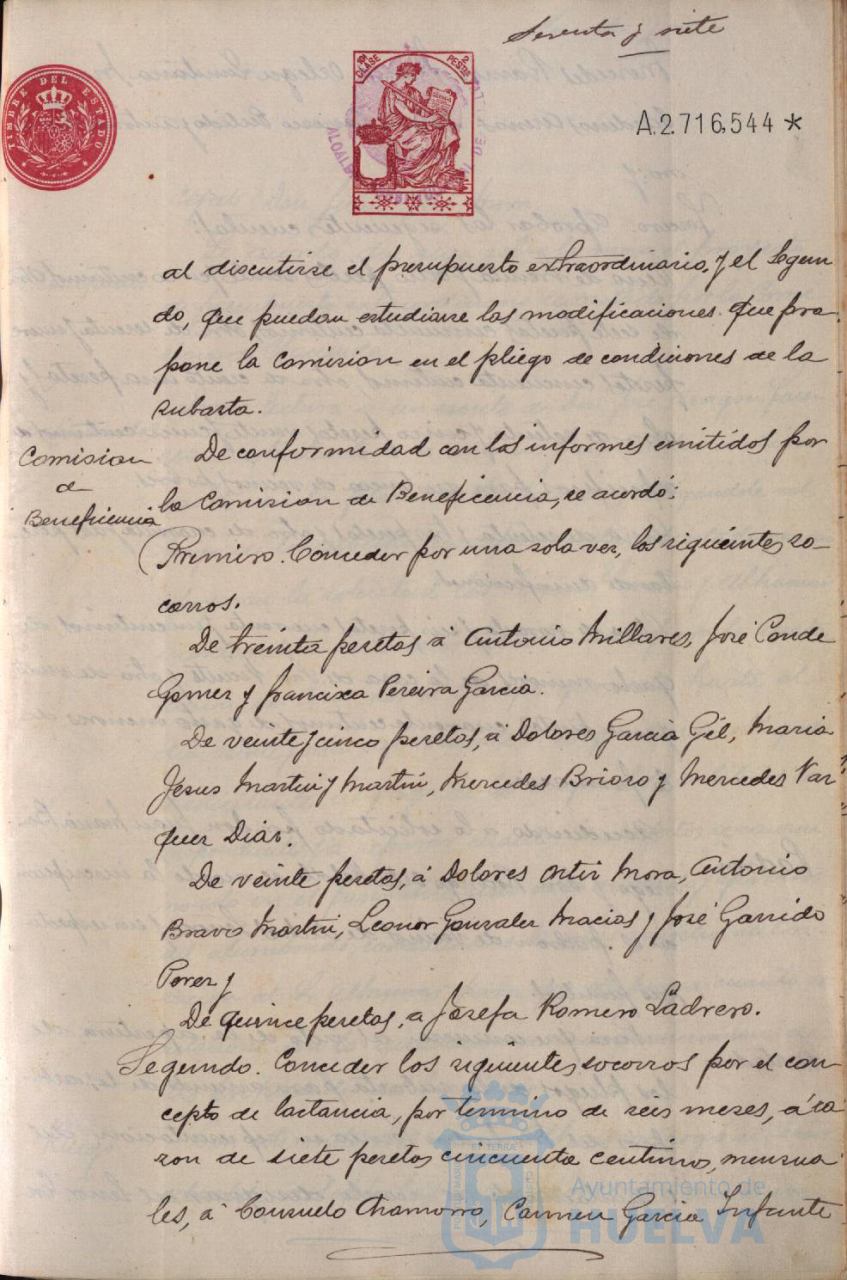 Sesenta y siete
TIMBRE DEL ESTADO
10ª CLASE
2 PESETAS
A.2.716,544 *
al discutirse el presupuesto extraordinario, y el Segun-
do, que puedan estudiarse las modificaciones que pro-
pone la Comision en el pliego de condiciones de la
subasta.
Comision
de
Beneficencia
De conformidad con los informes emitidos por
la Comision de Beneficencia, se acordó:
Primero. Conceder por una sola vez, los siguientes so-
corros.
De treinta pesetas á Antonio Millares, José Conde
Gomez y Francisca Pereira Garcia.
De veinte y cinco pesetas, á Dolores Garcia Gil, Maria
Jesus Martin y Martin, Mercedes Brioso y Mercedes Var
quez Dias.
De veinte pesetas, á Dolores Ortiz Mora, Antonio
Bravo Martin, Leonor Gonzalez Macias y José Garrido
Perez y
De quince pesetas, a Josefa Romero Ladrero.
Segundo. Conceder los siguientes socorros por el con-
cepto de lactancia, por termino de seis meses, á ra
zon de siete pesetas cincuenta centimos, mensua-
les, á Consuelo Chamorro, Carmen Garcia Infante
Ayuntamiento de
HUELVA